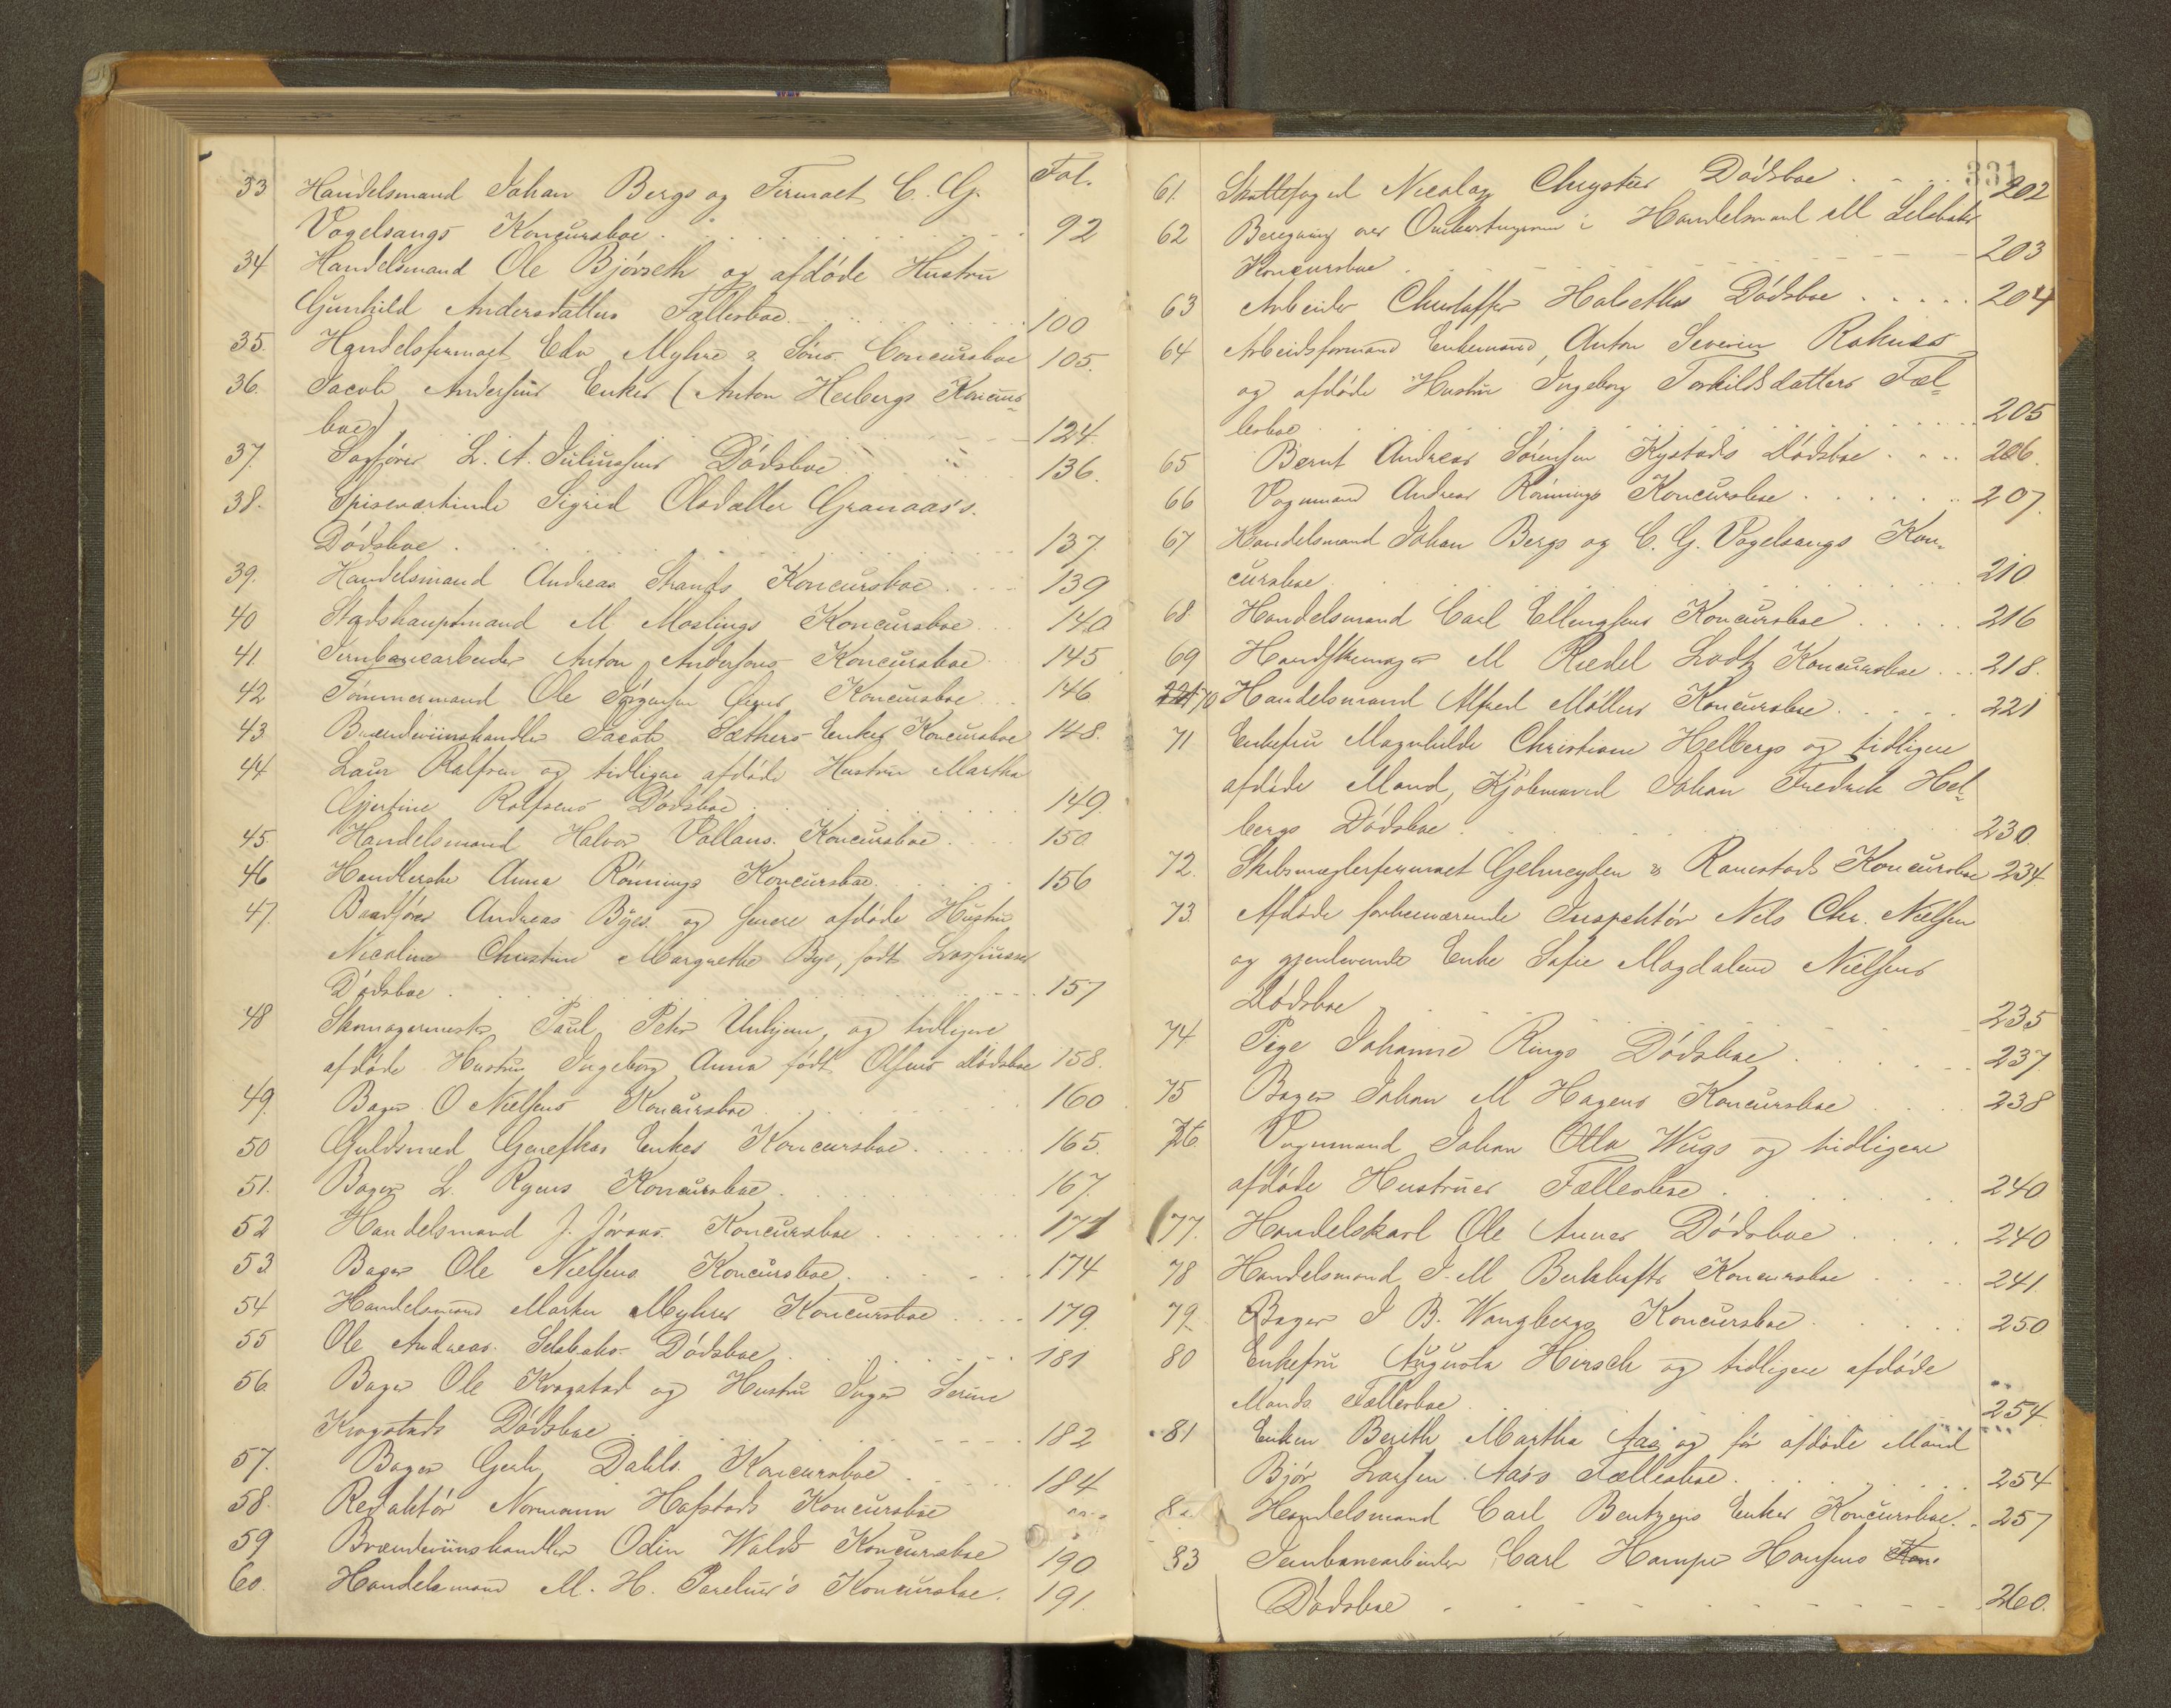 Fol.
33 Handelsmand Johan Bergs og Firmaet C. G.
Vogelsangs Koncursboe 92
34 Handelsmand Ole Bjørseth og afdøde Hustru
Gunhild Andersdatters Fællesboe 100
35. Handelsfirmaet Edv Myhre & Søns Concursboe 105.
36. Jacob Andersens Enkes (Anton Heibergs Koncurs=
boe) 124.
37. Sagfører L. A. Juliussens Dødsboe 136.
38. Spiseværtinde Sigrid Olsdatter Granaas's.
Dødsboe 137.
39. Handelsmand Andreas Strands Koncursboe 139
40 Stadshauptmand M Moslings Koncursboe 140
41. Jernbanearbeider Anton Andersens Koncursboe 145
42 Tømmermand Ole Jørgensen Koncursboe 146
43. Brændeviinshandler Jacob Sæthers Enkes Koncursboe 148.
44 Laur Rolfsen og tidligere afdøde Hustru Martha
Gjertine Rolfsens Dødsboe 149.
45. Handelsmand Halvor Vollans. Koncursboe 150
46 Handlerske Anna Rønnings Koncursboe 156
47. Baadfører Andreas Byes og senere afdøde Hustru
Nicoline Christine Margrethe Bye, født
Dødsboe 157
48 Skomagermester Paul Peter og tidligere
afdøde Hustru Ingeborg Anna født Olsens Dødsboe 158.
49. Bager O Nielsens Koncursboe 160
50 Guldsmed Enkes Koncursboe 165.
51. Bager L. Rygens Koncursboe 167.
52 Handelsmand J. Koncursboe 171
53 Bager Ole Nielsens Koncursboe 174
54 Handelsmand Martin Myhres Koncursboe 179.
55 Ole Andreas Selsbaks Dødsboe 181
56 Bager Ole Krogstad og Hustru Inger Serine
Krogstads Dødsboe 182
57. Bager Gerh. Dahls Koncursboe 184
58. Redaktør Normann Hofstads Koncursboe
59 Brændeviinshandler Odin Walds Koncursboe 190
60. Handelsmand M. H. Koncursboe. 191.
331
61. Skattefoged Nicolay Chrysties Dødsboe 202
62 Beregning over Omkostningerne i Handelsmand M Selsbaks
Koncursboe 203
63 Arbeider Christoffer Halseths Dødsboe 204
64 Arbeidsformand Enkemand, Anton Severin Roknes
og afdøde Hustru Ingeborg Torkildsdatters Fæl=
lesboe 205
65 Bernt Andreas Sørensen Kystads Dødsboe 206.
66 Vognmand Andreas Rønnings Koncursboe 207.
67 Handelsmand Johan Bergs og C. G. Vogelsangs Kon=
cursboe 210
68 Handelsmand Carl Ellingsens Koncursboe 216
69 Handskemager M Riedel Lodtz Koncursboe 218.
70 Handelsmand Alfred Møllers Koncursboe 221
71 Enkefru Magnhilde Christiane Helbergs og tidligere
afdøde Mand, Kjøbmand Johan Fredrik Hel=
bergs Dødsboe 230.
72. Skibsmæglerfirmaet Gelmeyden & Ranestads Koncursboe 234
73 Afdøde forhenværende Inspektør Nils Chr. Nielsen
og gjenlevende Enke Sofie Magdalene Nielsens
Dødsboe 235
74 Pige Johanne Rings Dødsboe 237.
75 Bager Johan M Hagens Koncursboe 238
76. Vognmand Johan Wugs og tidligere
afdøde Hustrues Fællesboe 240
77. Handelskarl Ole Aunes Dødsboe 240
78 Handelsmand J. M Koncursboe 241.
79. Bager J B. Wangbergs Koncursboe 250
80 Enkefru Augusta Hirsch og tidligere afdøde
Mands Fællesboe 254.
81 Enken Berith Martha Aas og før afdøde Mand
Bjør Larsen Aas's Fællesboe 254
82 Handelsmand Carl Bentzens Enkes Koncursboe. 257
83 Jernbanearbeider Carl Hampe Hansens Kon.
Dødsboe 260.